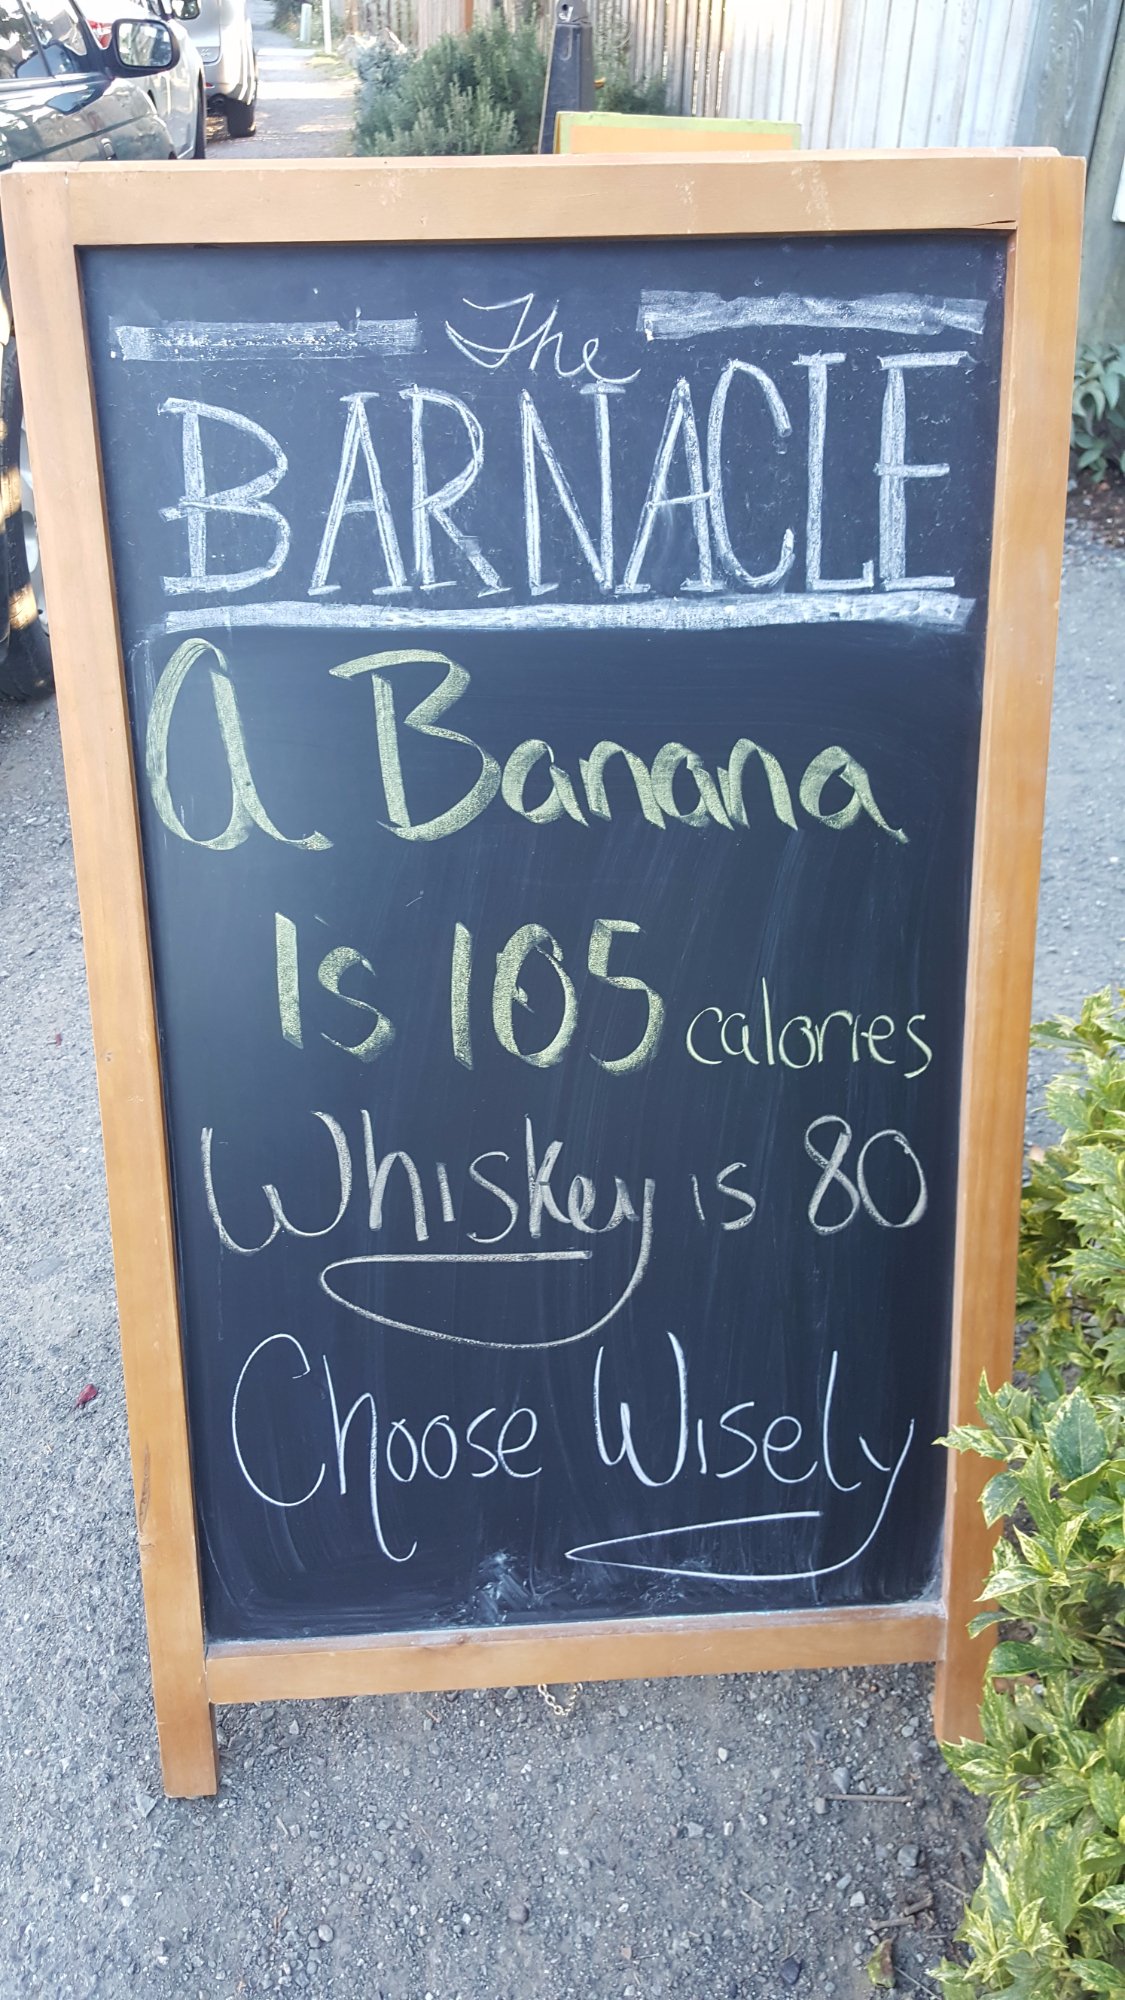 The
BARNACLE
A Banana
Is 105 calories
Whiskey is 80
Choose Wisely